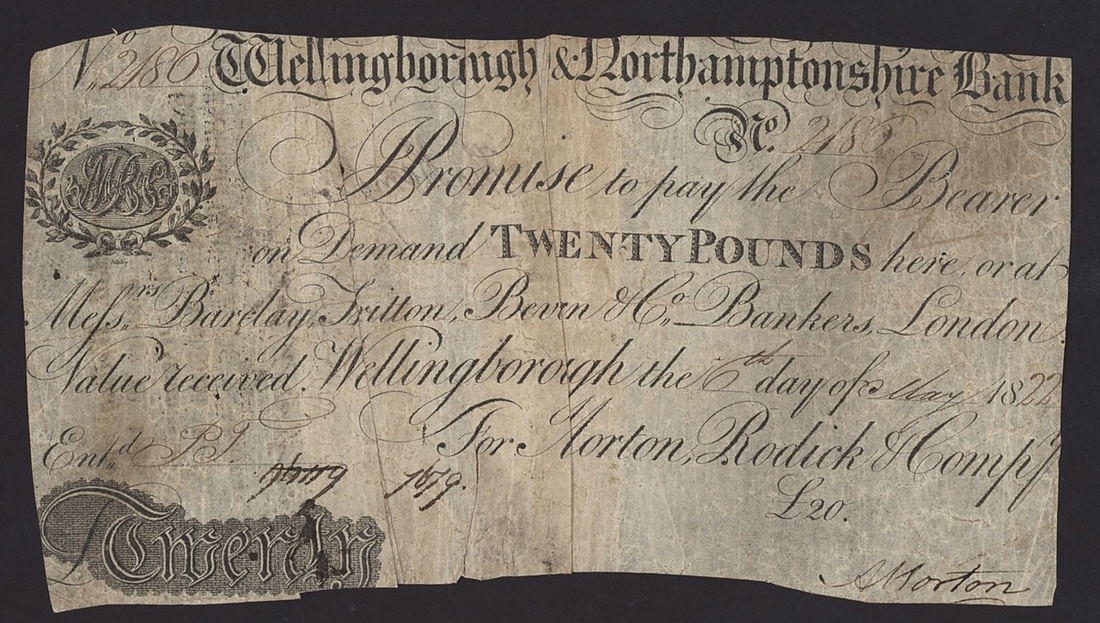 No. 2186 Wellingborough & Northamptonshire Bank
No. 2186
I Promise to pay the Bearer
on Demand TWENTY POUNDS here, or at
Messrs. Barclay, Tritton, Bevan & Co. Bankers, London
Value received. Wellingborough the 6th day of May 1822
Entd.
For Morton, Rodick & Compy.
£20.
Twenty
A Morton